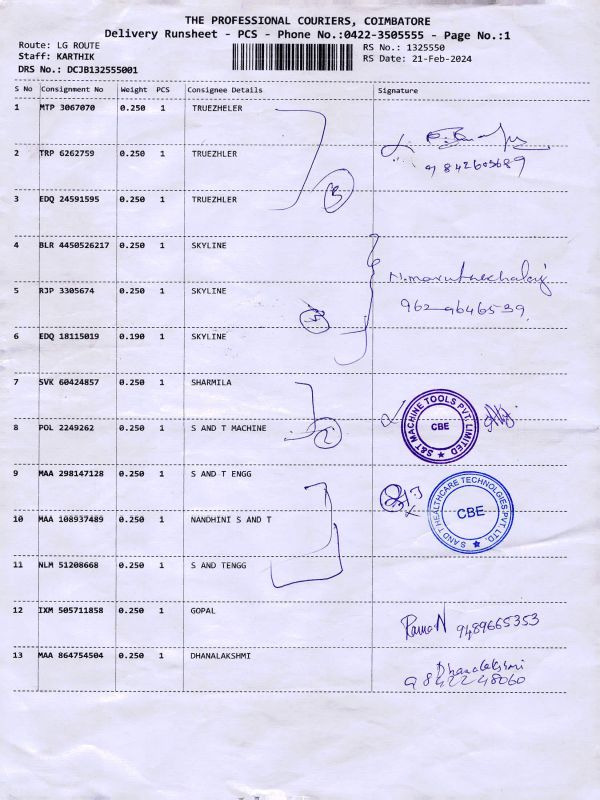 THE PROFESSIONAL COURIERS, COIMBATORE
Delivery Runsheet - PCS - Phone No.:0422-3505555 - Page No.:1
Route: LG ROUTE
RS No.: 1325550
Staff: KARTHIK
RS Date: 21-Feb-2024
DRS No.: DCJB132555001
S No Consignment No Weight PCS Consignee Details Signature
1 MTP 3067070 0.250 1 TRUEZHELER
2 TRP 6262759 0.250 1 TRUEZHLER
9842605689
3 EDQ 24591595 0.250 1 TRUEZHLER
3
4 BLR 4450526217 0.250 1 SKYLINE
5 RJP 3305674 0.250 1 SKYLINE
962 9646539
3
6 EDQ 18115019 0.190 1 SKYLINE
7 SVK 60424857 0.250 1 SHARMILA
8 POL 2249262 0.250 1 S AND T MACHINE
2
S&T MACHINE TOOLS PVT. LIMITED
CBE
9 MAA 298147128 0.250 1 S AND T ENGG
S AND T HEALTHCARE TECHNOLGIES PVT. LTD.
CBE
10 MAA 108937489 0.250 1 NANDHINI S AND T
11 NLM 51208668 0.250 1 S AND TENGG
12 IXM 505711858 0.250 1 GOPAL
9489665353
13 MAA 864754504 0.250 1 DHANALAKSHMI
Dhanalakshmi
9842248060